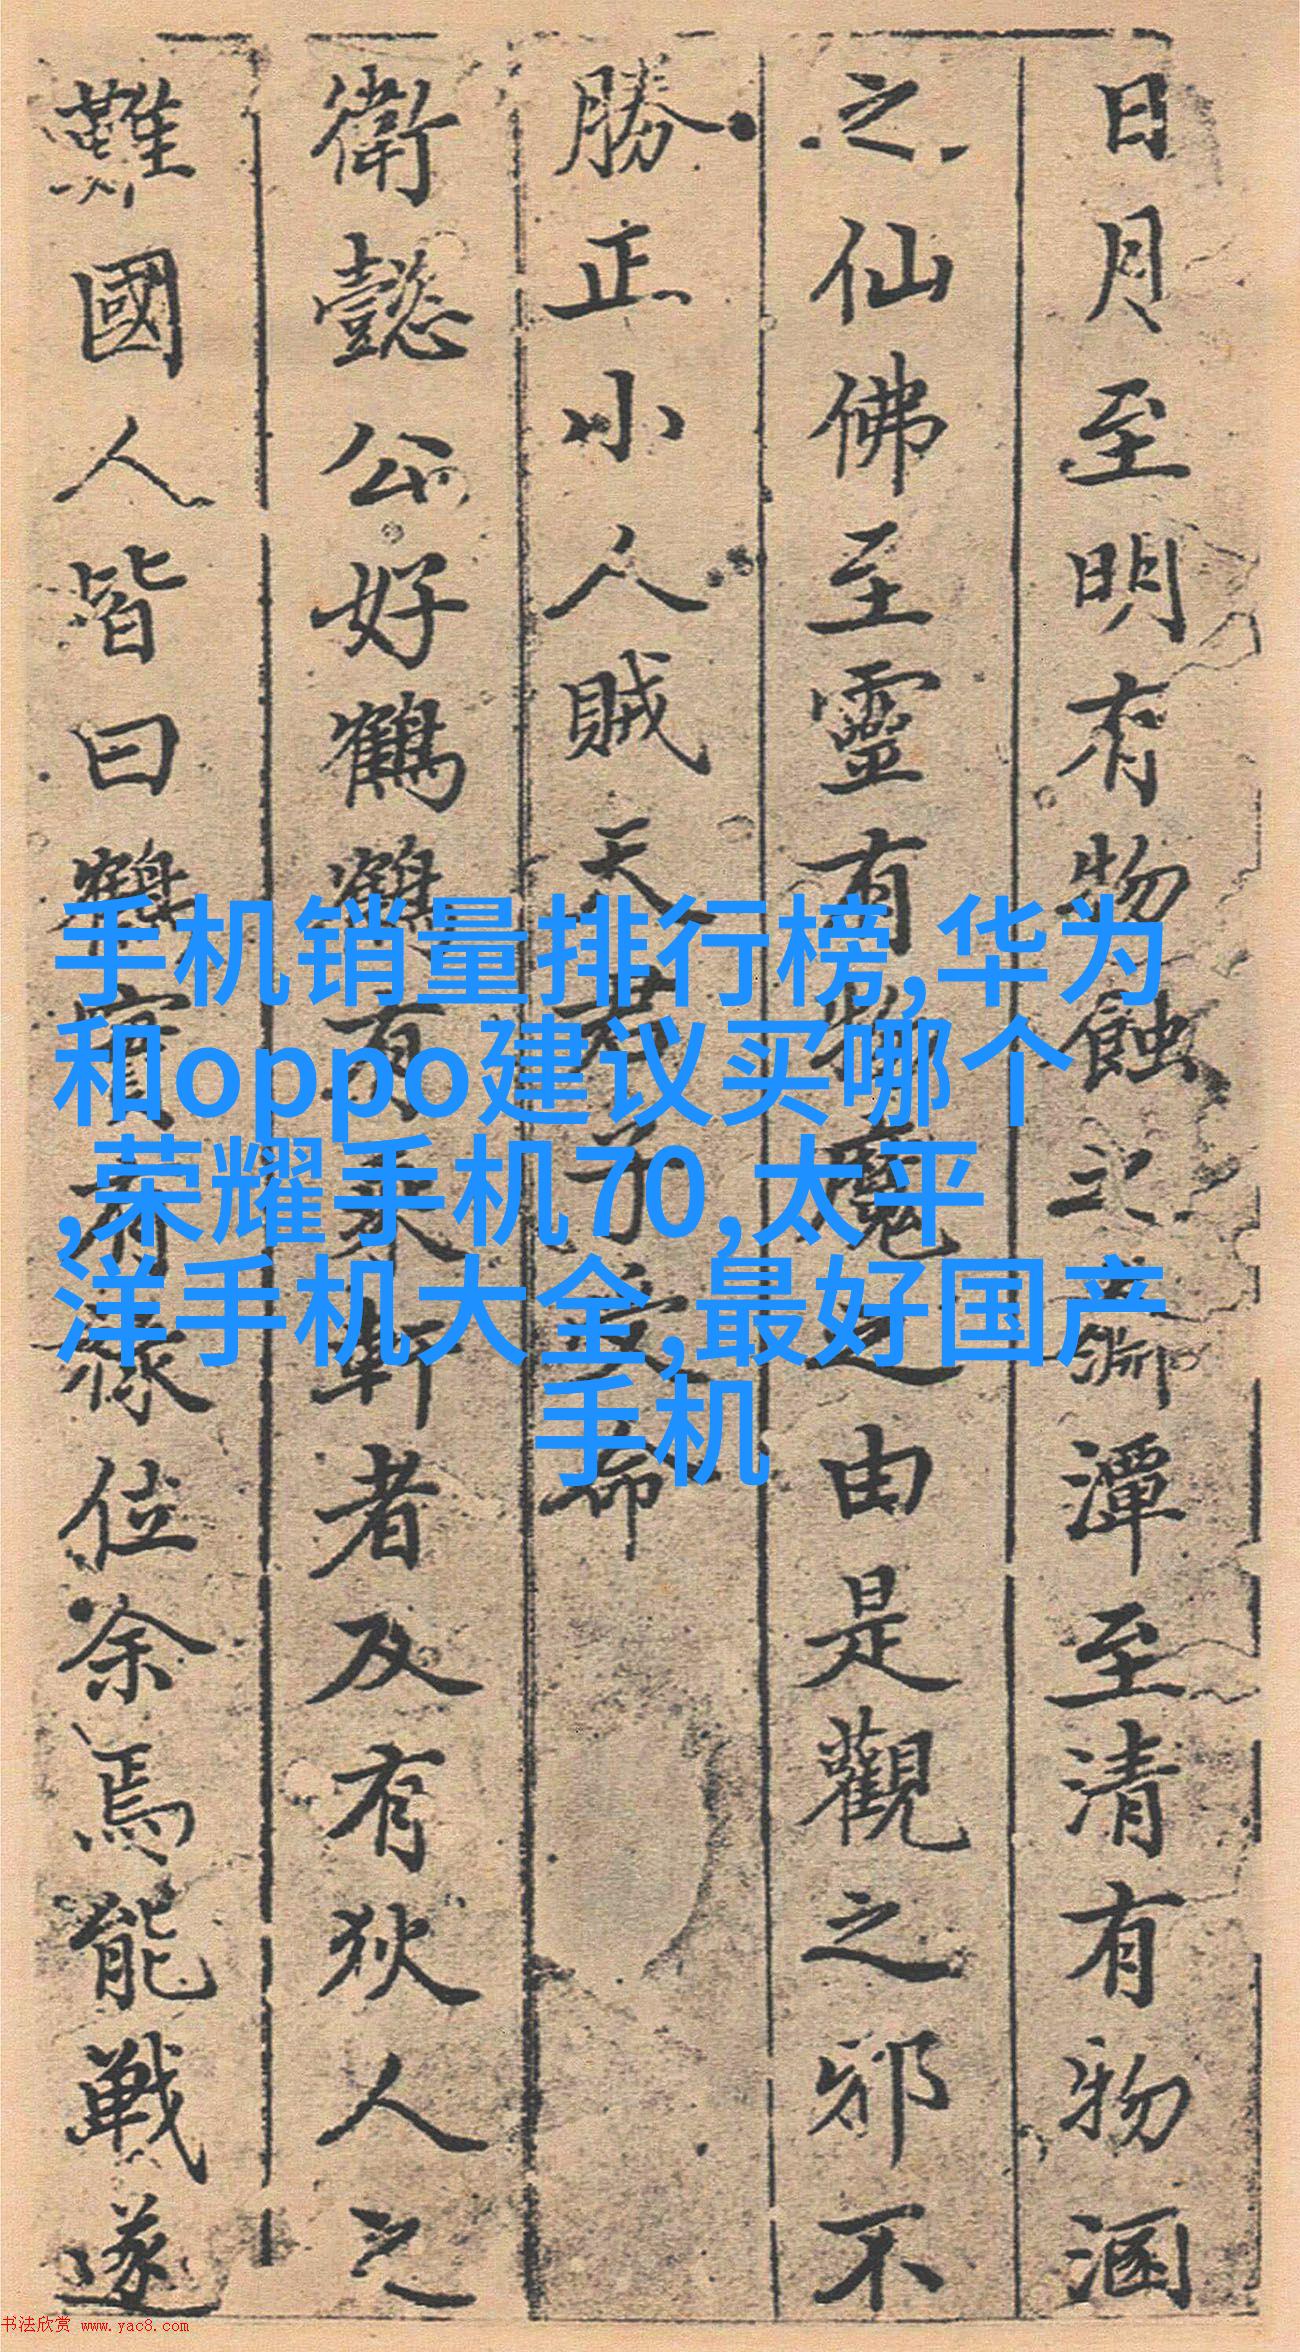 日月至明有物蝕之蕭潭至清有物涵
之仙佛至靈有物魔之由是觀之邪不
勝正小人賊天君子受命
衛懿公好鶴鶴有乘軒者及有狄人之
難國人皆曰鶴實有祿位余焉能戰遂
手机销量排行榜,华为
和oppo建议买哪个
,荣耀手机70,太平
洋手机大全,最好国产
手机
书法欣赏 www.yac8.com